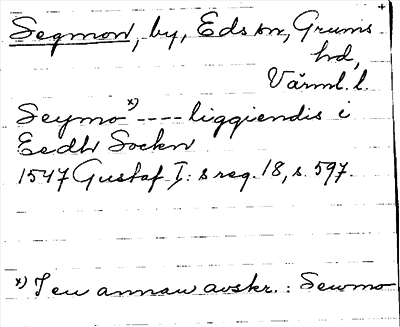 Segmon, by, Eds sn, Grums
hd,
Värml. l.
Seymo x) ---- liggiendis i
Eedh Sockn
1547 Gustaf I:s reg. 18, s. 597.
x) I en annan avskr.: Sewmo